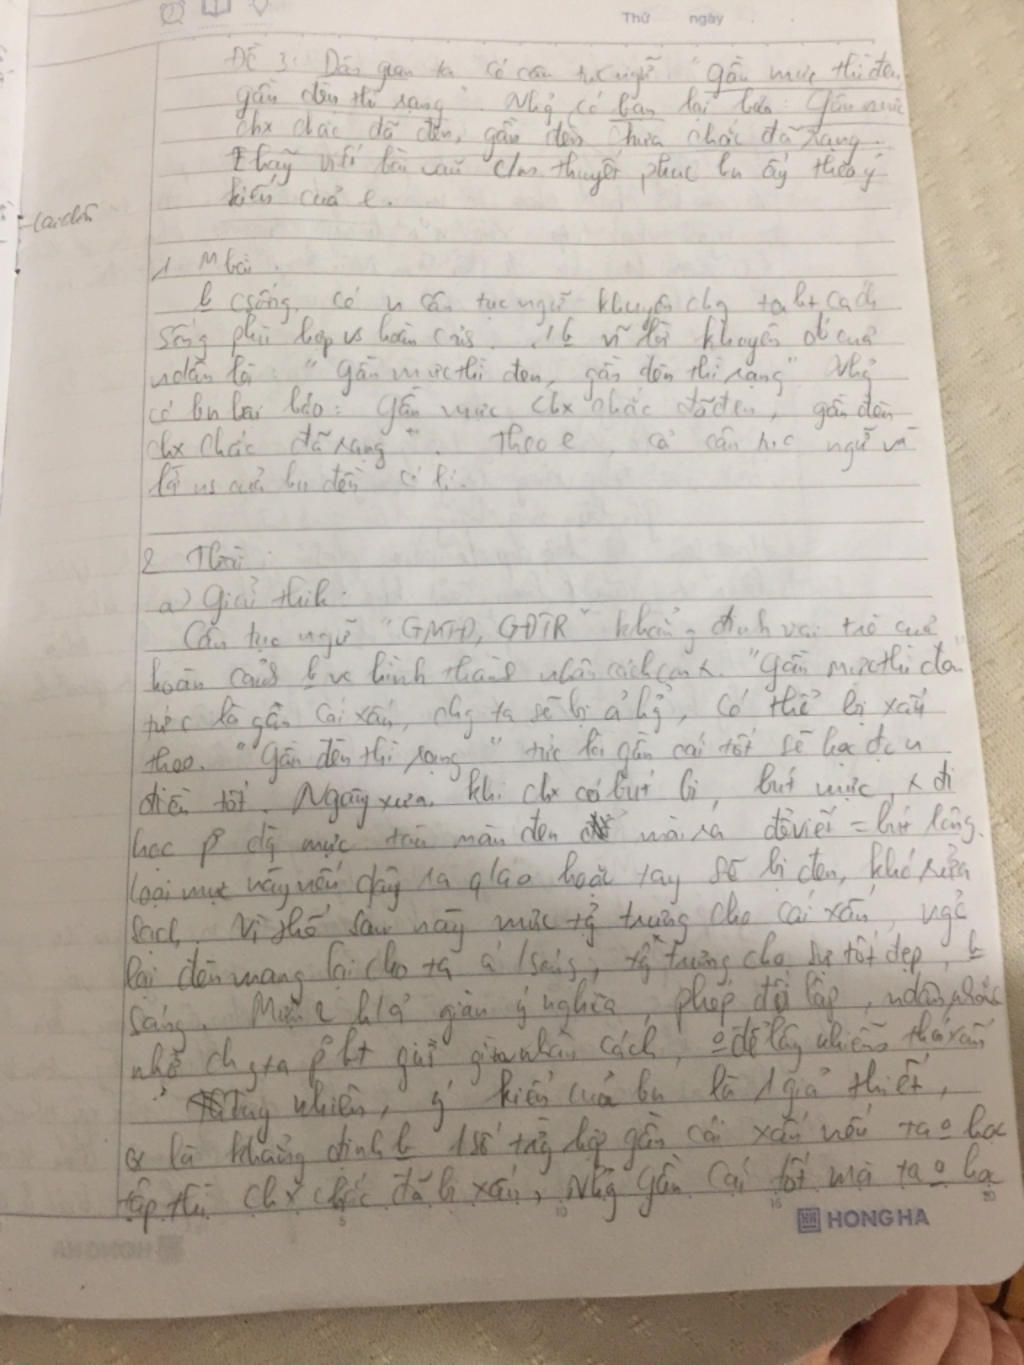 Thứ ngày
Đề 3: Dân gian ta có câu tục ngữ "gần mực thì đen,
gần đèn thì rạng". Nhg có bạn lại bảo: Gần mực
chx chắc đã đen, gần đèn chưa chắc đã rạng.
E hãy viết bài văn c/m thuyết phục bn ấy theo ý
kiến của e.
1 M bài.
có n câu tục ngữ khuyên chg ta bt cách
sống phù hợp vs hoàn cảnh.
"gần mực thì đen, gần đèn thì rạng" Nhg
có bn lại bảo: gần mực chx chắc đã đen, gần đèn
chx chắc đã rạng". Theo e, cả câu tục ngữ và
của bn đều có lí.
2 Tbài:
a) Giải thích:
Câu tục ngữ "GMTĐ, GĐTR" khẳng định vai trò của
hoàn cảnh vc hình thành nhân cách con "Gần mực thì đen"
tức là gần cái xấu, chg ta sẽ bị ả hg, có thể bị xấu
theo. "Gần đèn thì rạng" tức là gần cái tốt sẽ học đc n
điều tốt. Ngày xưa, khi chx có bút bi, bút mực, đi
học p dg mực tàu màu đen mài ra để viết = bút lông.
Loại mực này nếu dây ra q/áo hoặc tay sẽ bị đen, khó rửa
sạch. Vì thế sau này mực tg trưng cho cái xấu, ngc
lại đèn mang lại cho ta á/sáng, tg trưng cho sự tốt đẹp,
sáng. Mượn 2 h/ả giàu ý nghĩa, phép đối lập, ndân nhắc
nhở chg ta p bt giữ gìn nhân cách, để lây nhiễm thói xấu
Tuy nhiên, ý kiến của bn là 1 giả thiết,
là khẳng định 1 số trg hợp gần cái xấu nếu ta học
tập thì chx chắc đã bị xấu, Nhg gần cái tốt mà ta học
HONG HA